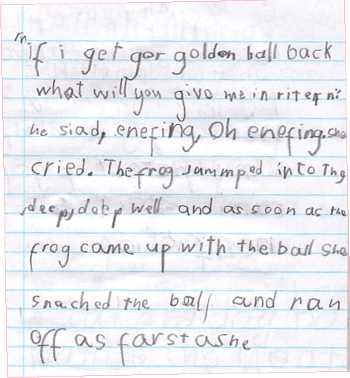 "if i get gor golden ball back
what will you give me in riterni
he siad, enefing, Oh enefing. she
cried. The frog Jammped into the
deep, deep well and as soon as the
frog came up with the ball she
snached the ball and ran
off as farst ashe